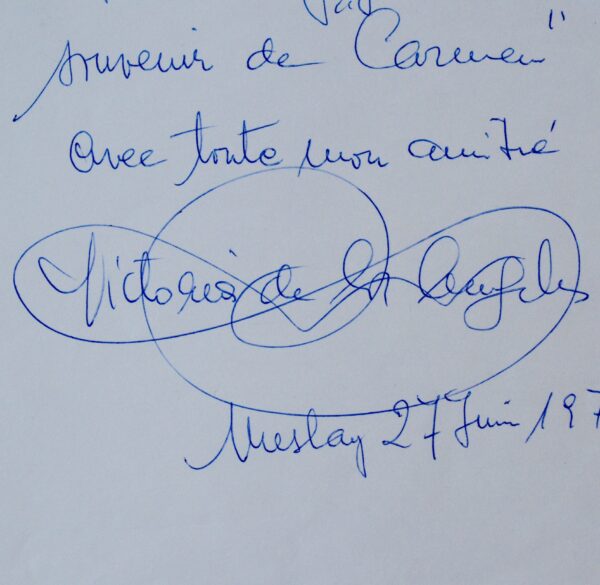 souvenir de Carmen"
avec toute mon amitié
Victoria de los Angeles
Meslay 27 Juin 197